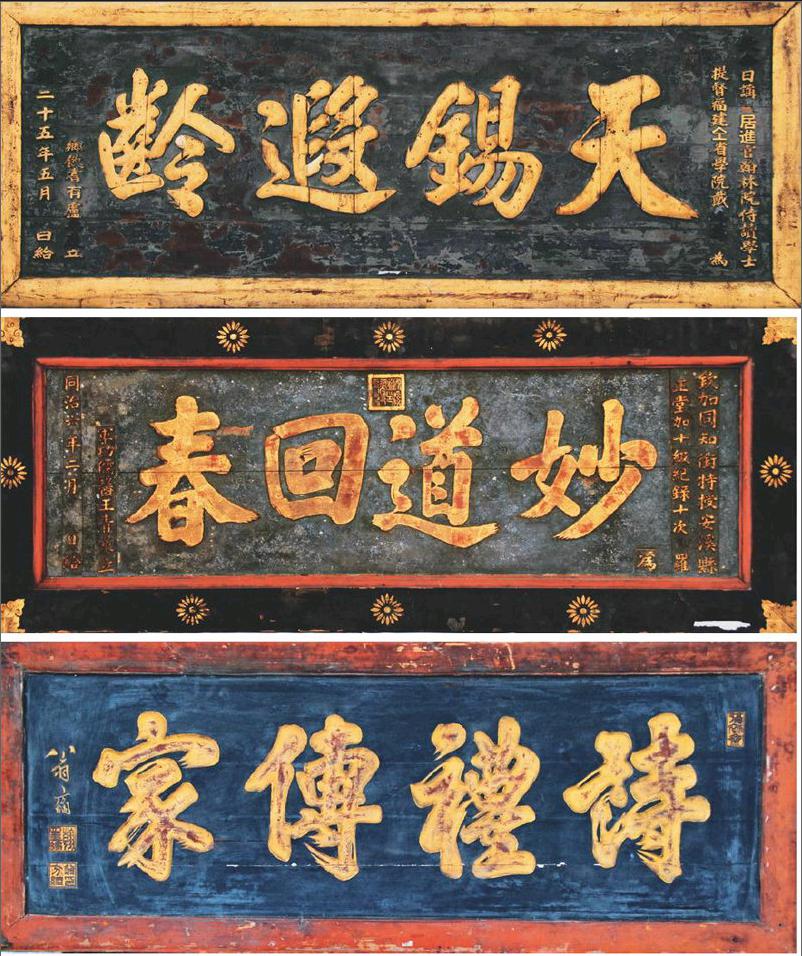 日講 起居進官翰林院侍讀學士
提督福建全省學院戴 為
天錫遐齡
鄉飲耆有盧 立
二十五年五月 日給
欽加同知銜特授安溪縣
正堂加十級紀錄十次 羅
為
妙道回春
立
同治 年二月 日給
詩禮傳家